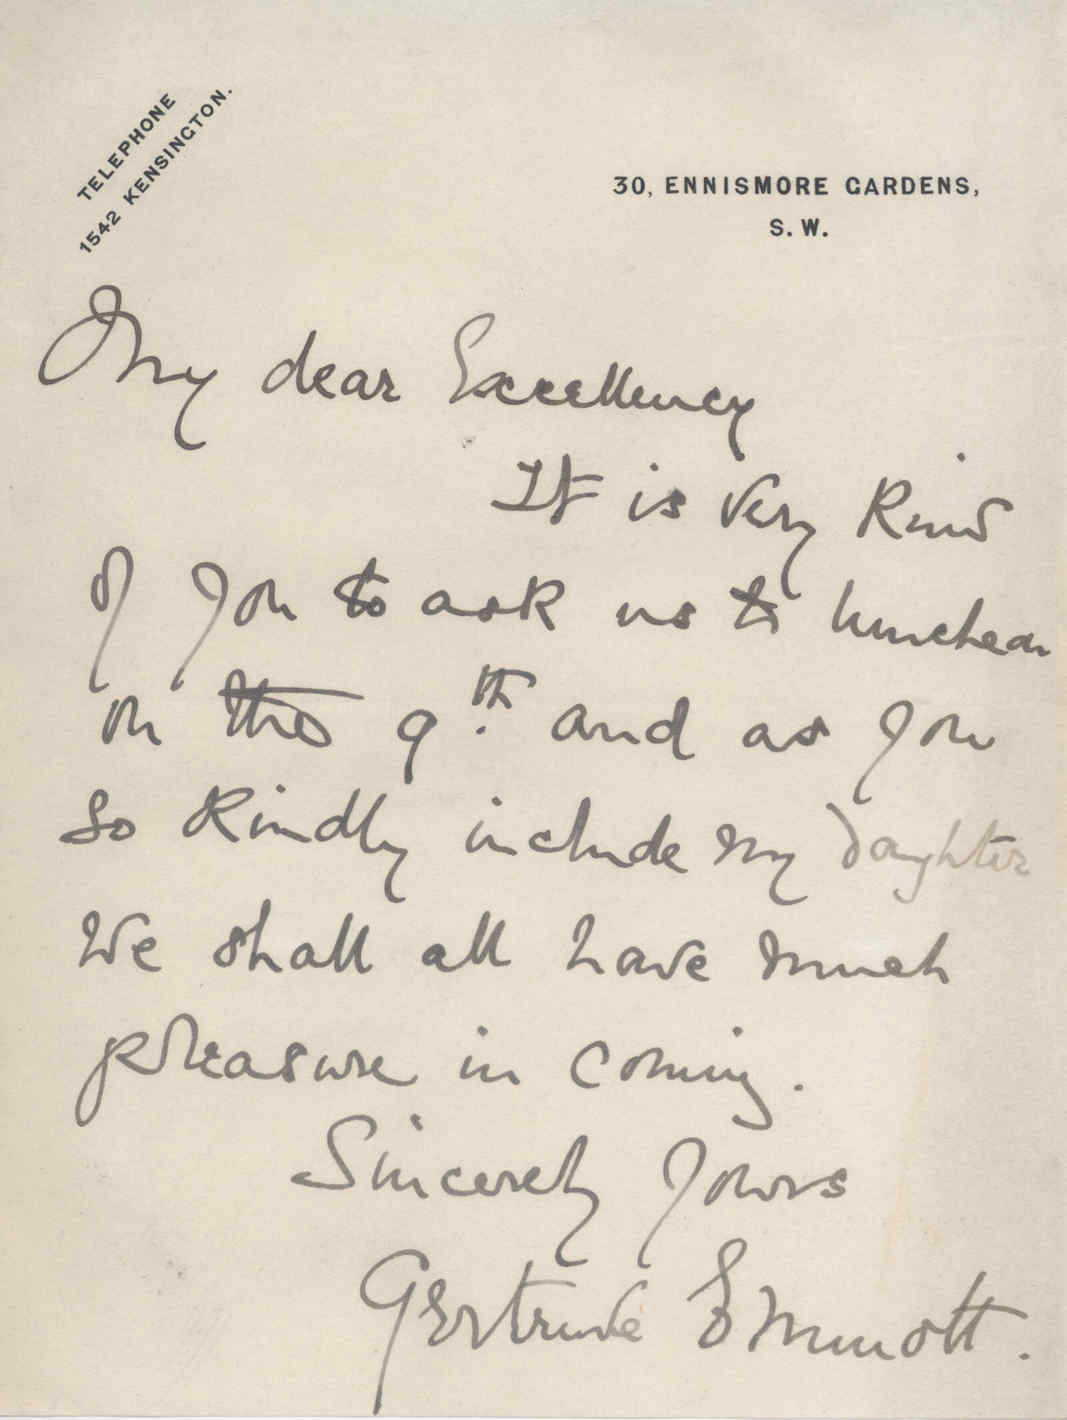 TELEPHONE
1542 KENSINGTON.
30, ENNISMORE GARDENS,
S. W.
My dear Excellency
It is very kind
of you to ask us to luncheon
on the 9th. and as you
so kindly include my daughter
we shall all have much
pleasure in coming.
Sincerely yours
Gertrude Emmott.